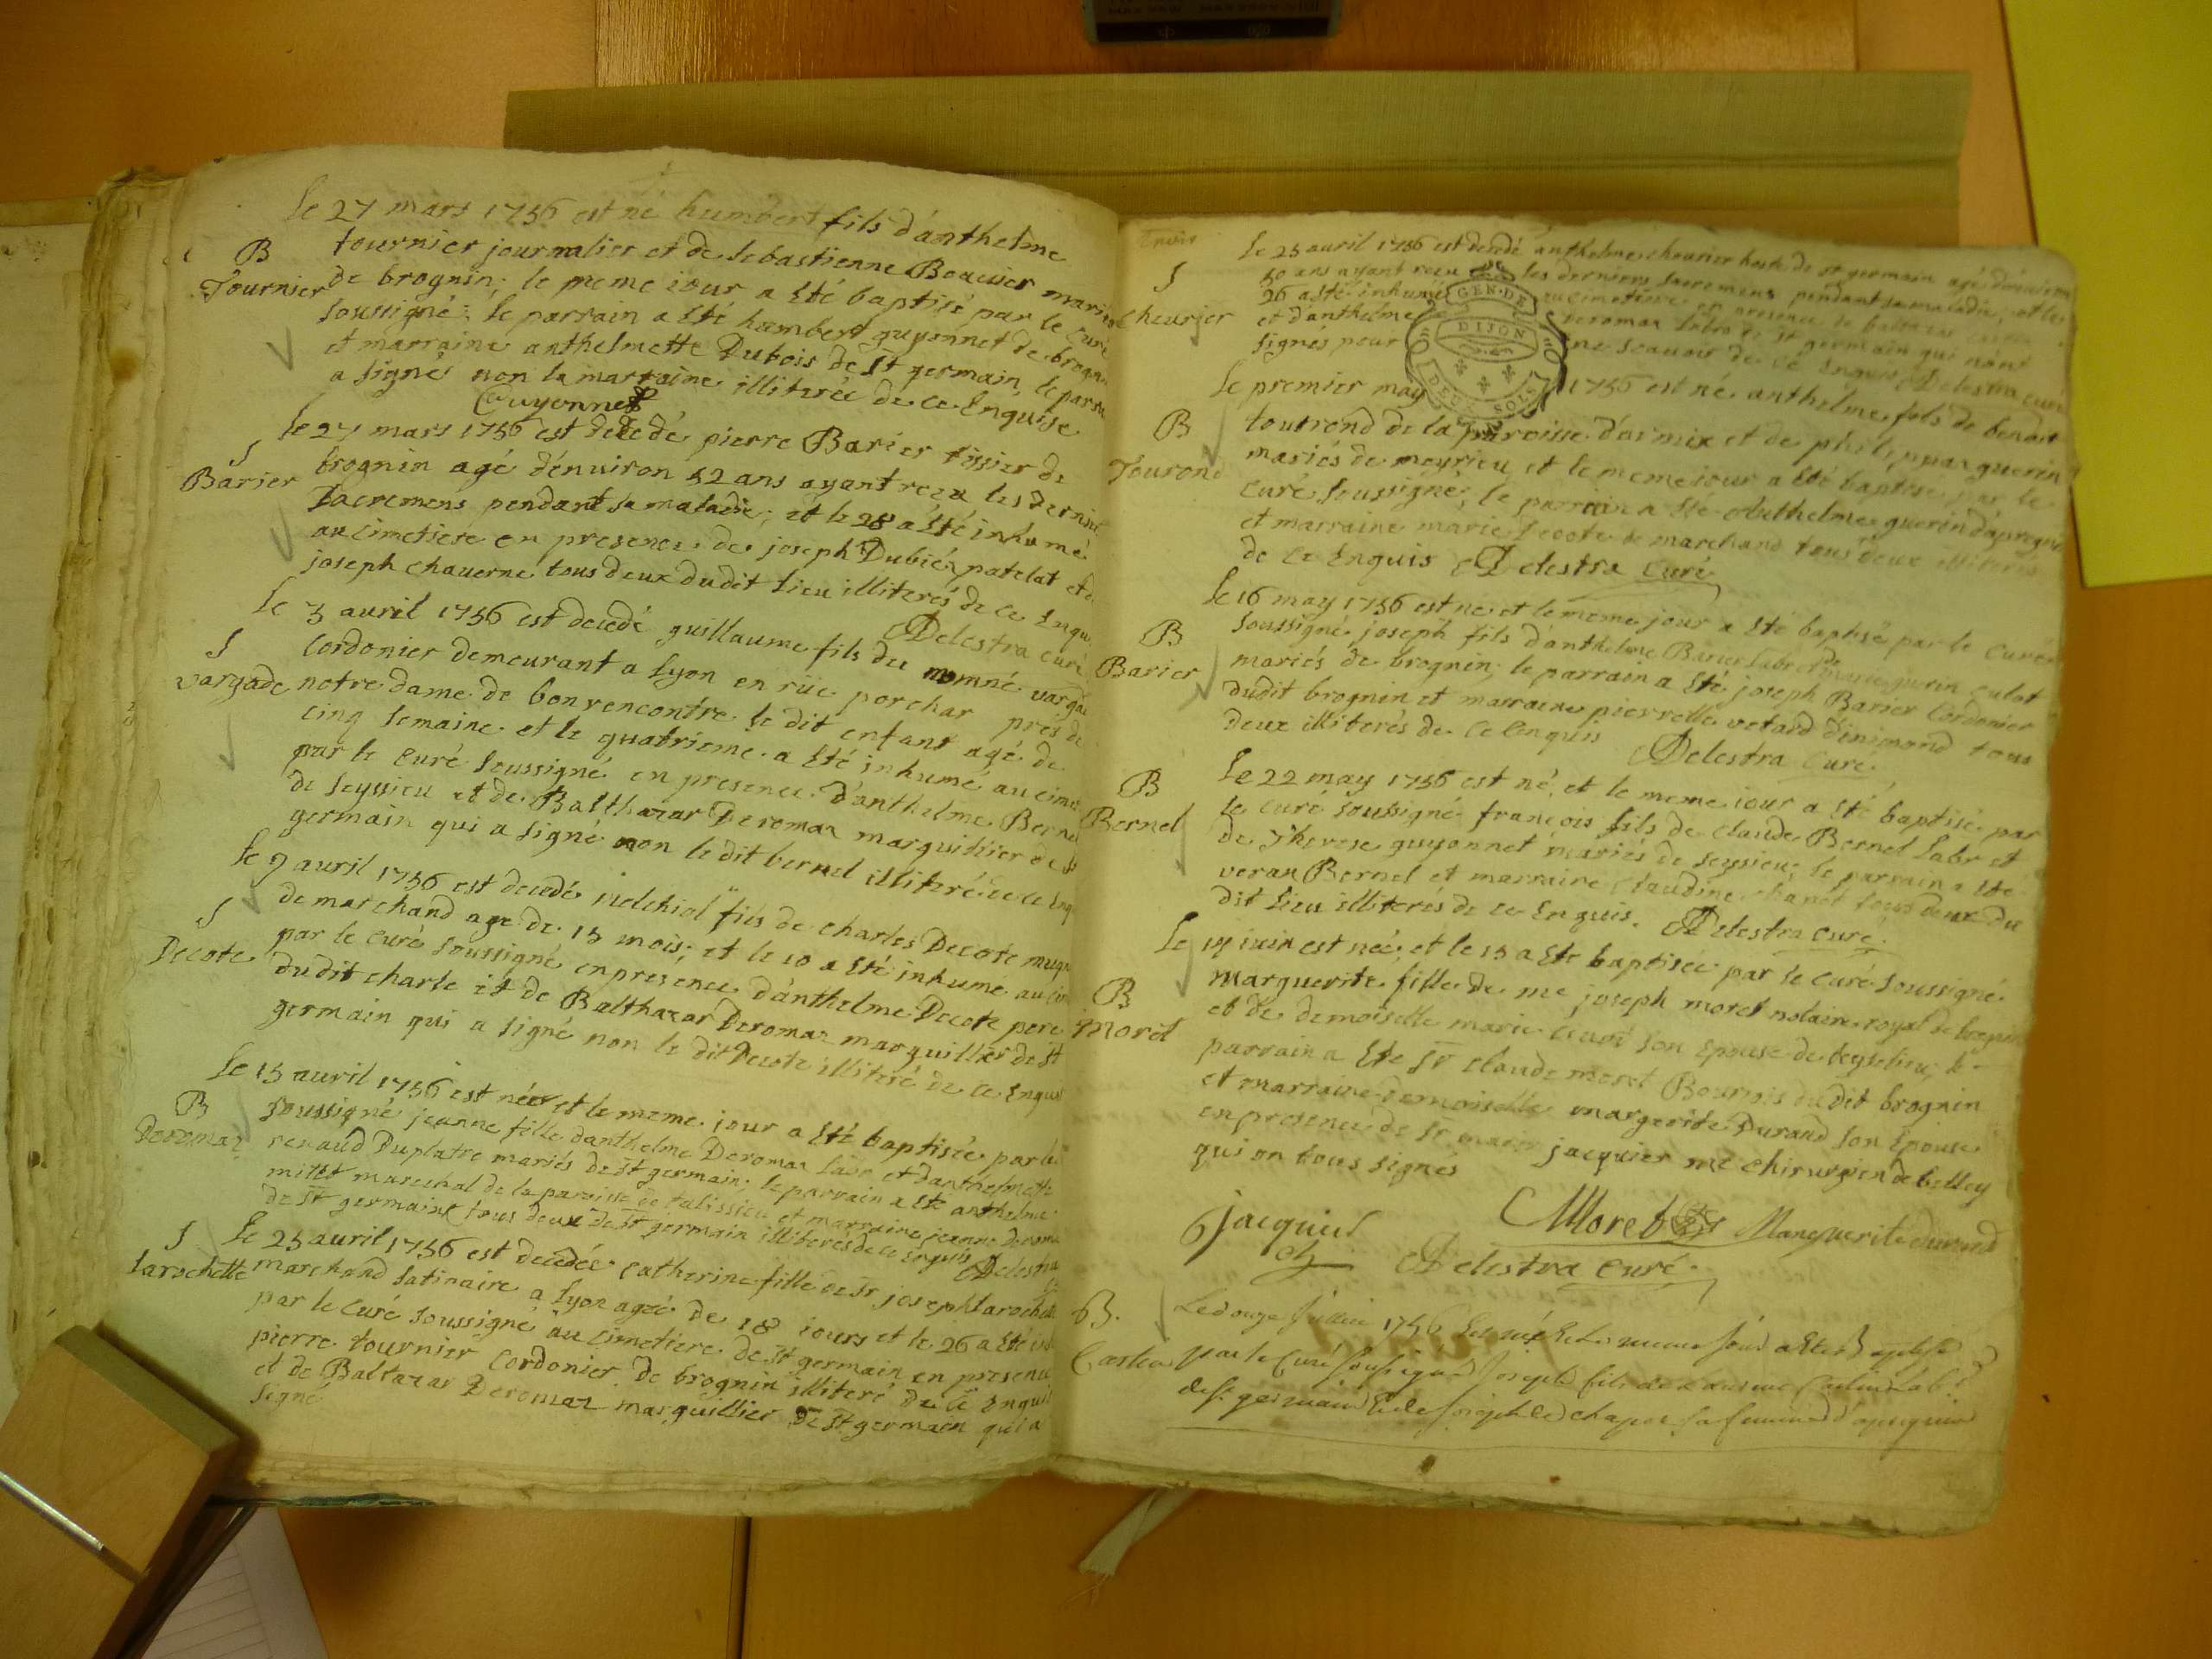 Le 27 mars 1756 est né humbert fils d'anthelme
B
tournier journalier et de sebastienne Boucuer mariés
Tournier
de brognin; le meme iour a Eté baptisé par le curé
soussigné; le parrain a Eté humbert guyonnet de brognin
et marraine anthelmette Dubois de St germain le parra
a signé non la marraine illiterée de ce Enquise
Guyonnet
le 27 mars 1756 est decedé pierre Barier tissier de
S
Barier
brognin agé d'enuiron 52 ans ayant reçu les dernie
sacremens pendant sa maladie; et le 28 a Eté inhumé
au cimetiere en presence de joseph Dubié patelat et d
joseph chauerne tous deux dudit Lieu illiterés de ce Enqu
Delestra curé
Le 3 auril 1756 est decedé guillaume fils du nommé varga
S
vargade
cordonier demeurant a Lyon en rüe porchar prés de
notre dame de bon rencontre le dit enfant agé de
cinq semaine et le quatrieme a Eté inhumé au cime
par le curé soussigné en presence d'anthelme Bernel
de seyssieu et de Balthazar Deromaz marguillier de s
germain qui a signé non le dit bernel illiteré de ce Enq
Le 9 auril 1756 est decedé melchiol fils de charles Decote
S
Decote
de marchand age de 15 mois; et le 10 a Eté inhume au cim
par le curé soussigné en presence d'anthelme Decote pere
dudit charle et de Balthazar Deromaz marguillier de St
germain qui a signé non le dit Decote illiteré de ce Enqui
Le 15 auril 1756 est née et le meme jour a Eté baptisée par le
B
Deromaz
soussigné jeanne fille danthelme Deromaz labr et danthelmette
renaud Duplatre mariés de St germain; le parrain a Eté anthelme
milet marechal de la paroisse de talissieu et marraine jeanne Deroma
de St germain tous deux de St germain illiterés de ce Enquis Delestra
S
Larochette
Le 25 auril 1756 est decedée catherine fille de Sr joseph Larochette
marchand satinaire a Lyon agée de 18 iours et le 26 a Eté in
par le curé soussigné au cimetiere de St germain en presence
pierre tournier cordonier de brognin illiteré de ce Enquis
et de Baltazar Deromaz marguillier de St germain qui a
signé
Le 25 auril 1756 est decedé anthelme cheurier de St germain agé d'enuiron
S
cheurier
50 ans ayant reçu les derniers sacremens pendant sa maladie; et le
26 a Eté inhumé au cimetiere en presence de baltazar
et d'anthelme deromaz labrs de St germain qui n'ont
signés pour ne scauoir de ce Enquis Delestra curé
GEN. DE DIJON
DEUX SOLS
Le premier may 1756 est né anthelme fils de benoit
B
Tourond
tourond de la paroisse d'armix et de philippaz guerin
mariés de meyrieu et le meme iour a Eté baptisé par le
curé soussigné; le parrain a Eté Anthelme guerin d'apregnin
et marraine marie Decote de marchand tous deux illiterés
de ce Enquis Delestra curé
Le 16 may 1756 est né et le meme jour a Eté baptisé par le curé
B
Barier
soussigné joseph fils d'anthelme Barier labr et de marie guerin culot
mariés de brognin; le parrain a Eté joseph Barier cordonier
dudit brognin et marraine pierrette vetard d'enimond tous
deux illiterés de ce enquis Delestra curé
B
Bernel
Le 22 may 1756 est né, et le meme iour a Eté baptisé par
le curé soussigné françois fils de claude Bernel labr et
de Therese guyonnet mariés de seyssieu; le parrain a Eté
veran Bernel et marraine claudine tous deux du
dit Lieu illiterés de ce Enquis. Delestra curé
Le 14 iuin est neé; et le 15 a Eté baptisée par le curé soussigné
B
Moret
marguerite fille de me joseph moret notaire royal de brognin
et de demoiselle marie son Epouse de seyssieu; le
parrain a Eté Sr claude moret Bourgois dudit brognin
et marraine demoiselle margerite Durand son Epouse
en presence de Sr jacquier me chirurgien de belley
qui on tous signés
jacquier
Moret
Marguerite durand
Delestra curé
B.
Le douze Juillet 1756 Est né Et le meme Jour a Eté Baptisé
par le Curé soussigné Joseph fils de
de St germain Et de sa femme d'apregnin